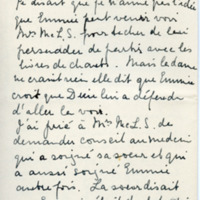 je disait que je n'aime pas l'idée
que Emmie peut venir voir
Mrs McL.S. pour tacher de lui
persuader de partir avec les
livres de chants. Mais la dame
ne craint rien elle dit que Emmie
croit que Dieu lui a défendu
d'aller la voir.
J'ai prié à Mrs McL.S. de
demander conseil au medecin
qui a soigné sa soeur et qui
a aussi soigné Emmie
autrefois. La soeur disait